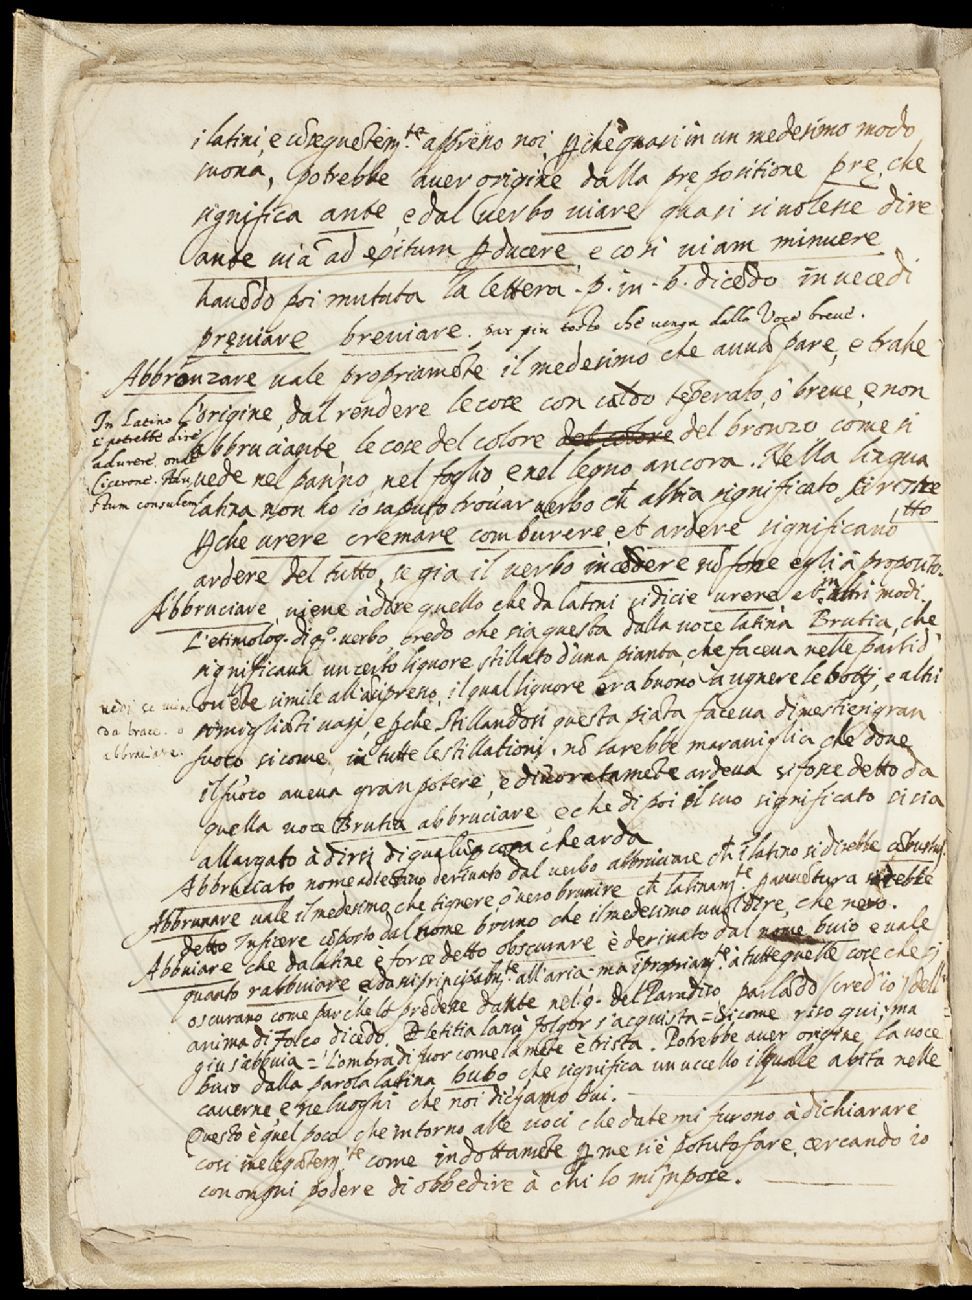 i latini, e cõseguẽtem.te appreso noi, ꝑche quasi in un medesimo modo
suona, potrebbe aver origine dalla prepositione prę, che
significa ante, e dal verbo viare quasi si volesse dire
ante viã ad exitum ꝑducere, e cosi viam minuere
havẽdo poi mutata la lettera .p. in .b. dicẽdo in vece di
pręviare breviare. par piu tosto che venga dalla Voce breve.
Abbronzare vale propriamẽte il medesimo che avvãpare, e trahe
l'origine, dal rendere le cose con caldo tẽperato, ò breve, e non
abbruciãte le cose del colore del colore del bronzo come si
vede nel panno, nel foglio, e nel legno ancora. Nella lingua
latina non ho io saputo trovar verbo ch abbia significato si ristre
tto
ꝑche urere cremare comburere, et ardere significano
ardere del tutto, se gia il verbo incẽdere nõ fosse egli à proposito.
In Latino
si potrebbe dire
adurere, onde
Cicerone.
stum consulem
Abbruciare, viene à dire quello che da latini si dicie urere e in altri modi.
L'etimolog. di qo. verbo, credo che sia questa dalla voce latina Brutia, che
significava un certo liquore stillato d'una pianta, che faceva nelle parti d'
simile all'acipreso, il qual liquore era buono à ugnere le botti, e altri
somigliãti vasi, e ꝑche stillandosi questa piãta faceva di mestieri gran
fuoco sicome, in tutte le stillationi. nõ sarebbe maraviglia che dove
il fuoco aveva gran potere, e divoratamẽte ardeva si fosse detto da
quella voce Brutia abbruciare, e che di poi il suo significato si sia
allargato à dirsi di qualũq cosa che arda
vedi se viene
da brace. o
abbraciare.
Abbruciato nome adiettivo derivato dal verbo abbruciare ch ĩ latino si direbbe cõbustus.
Abbrunare vale il medesimo, che tignere, o vero brunire ch latinam.te ꝑ avvẽtura sarebbe
detto Inficere cõposto dal nome bruno che il medesimo vuol dire, che nero.
Abbuiare che da latini e forse detto obscurare è derivato dal nome buio e vale
quanto rabbuiare e da noi principalm.te all'aria ma ĩpropriam.te à tutte quelle cose che si
oscurano come par che lo prẽdesse dante nel 9. del Paradiso parlãdo (cred'io) dell'
anima di Folco dicẽdo. P letitia lasu folgor s'acquista = Sicome riso qui; ma
giu s'abbuia = L'ombra di fuor come la mẽte è trista. Potrebbe aver origine la voce
buio dalla parola latina bubo che significa un uccello il quale abita nelle
caverne, e ne luoghi che noi diciamo bui.
Questo è quel poco che intorno alle voci che date mi furono à dichiarare
cosi inelegãtem.te come indottamẽte ꝑ me si è potuto fare, cercando io
con ongni podere di obbedire à chi lo m'inpose.